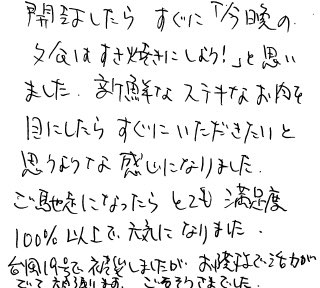 開封したら すぐに「今晩の
夕食はすき焼きにしよう!」と思い
ました。新鮮な ステキな お肉を
目にしたら すぐに いただきたいと
思うような 感じになりました。
ご馳走になったら とても 満足度
100%以上で、元気に なりました。
台風19号で 被災しましたが、お陰様で活力が
でて 頑張ります。ごちそうさまでした。